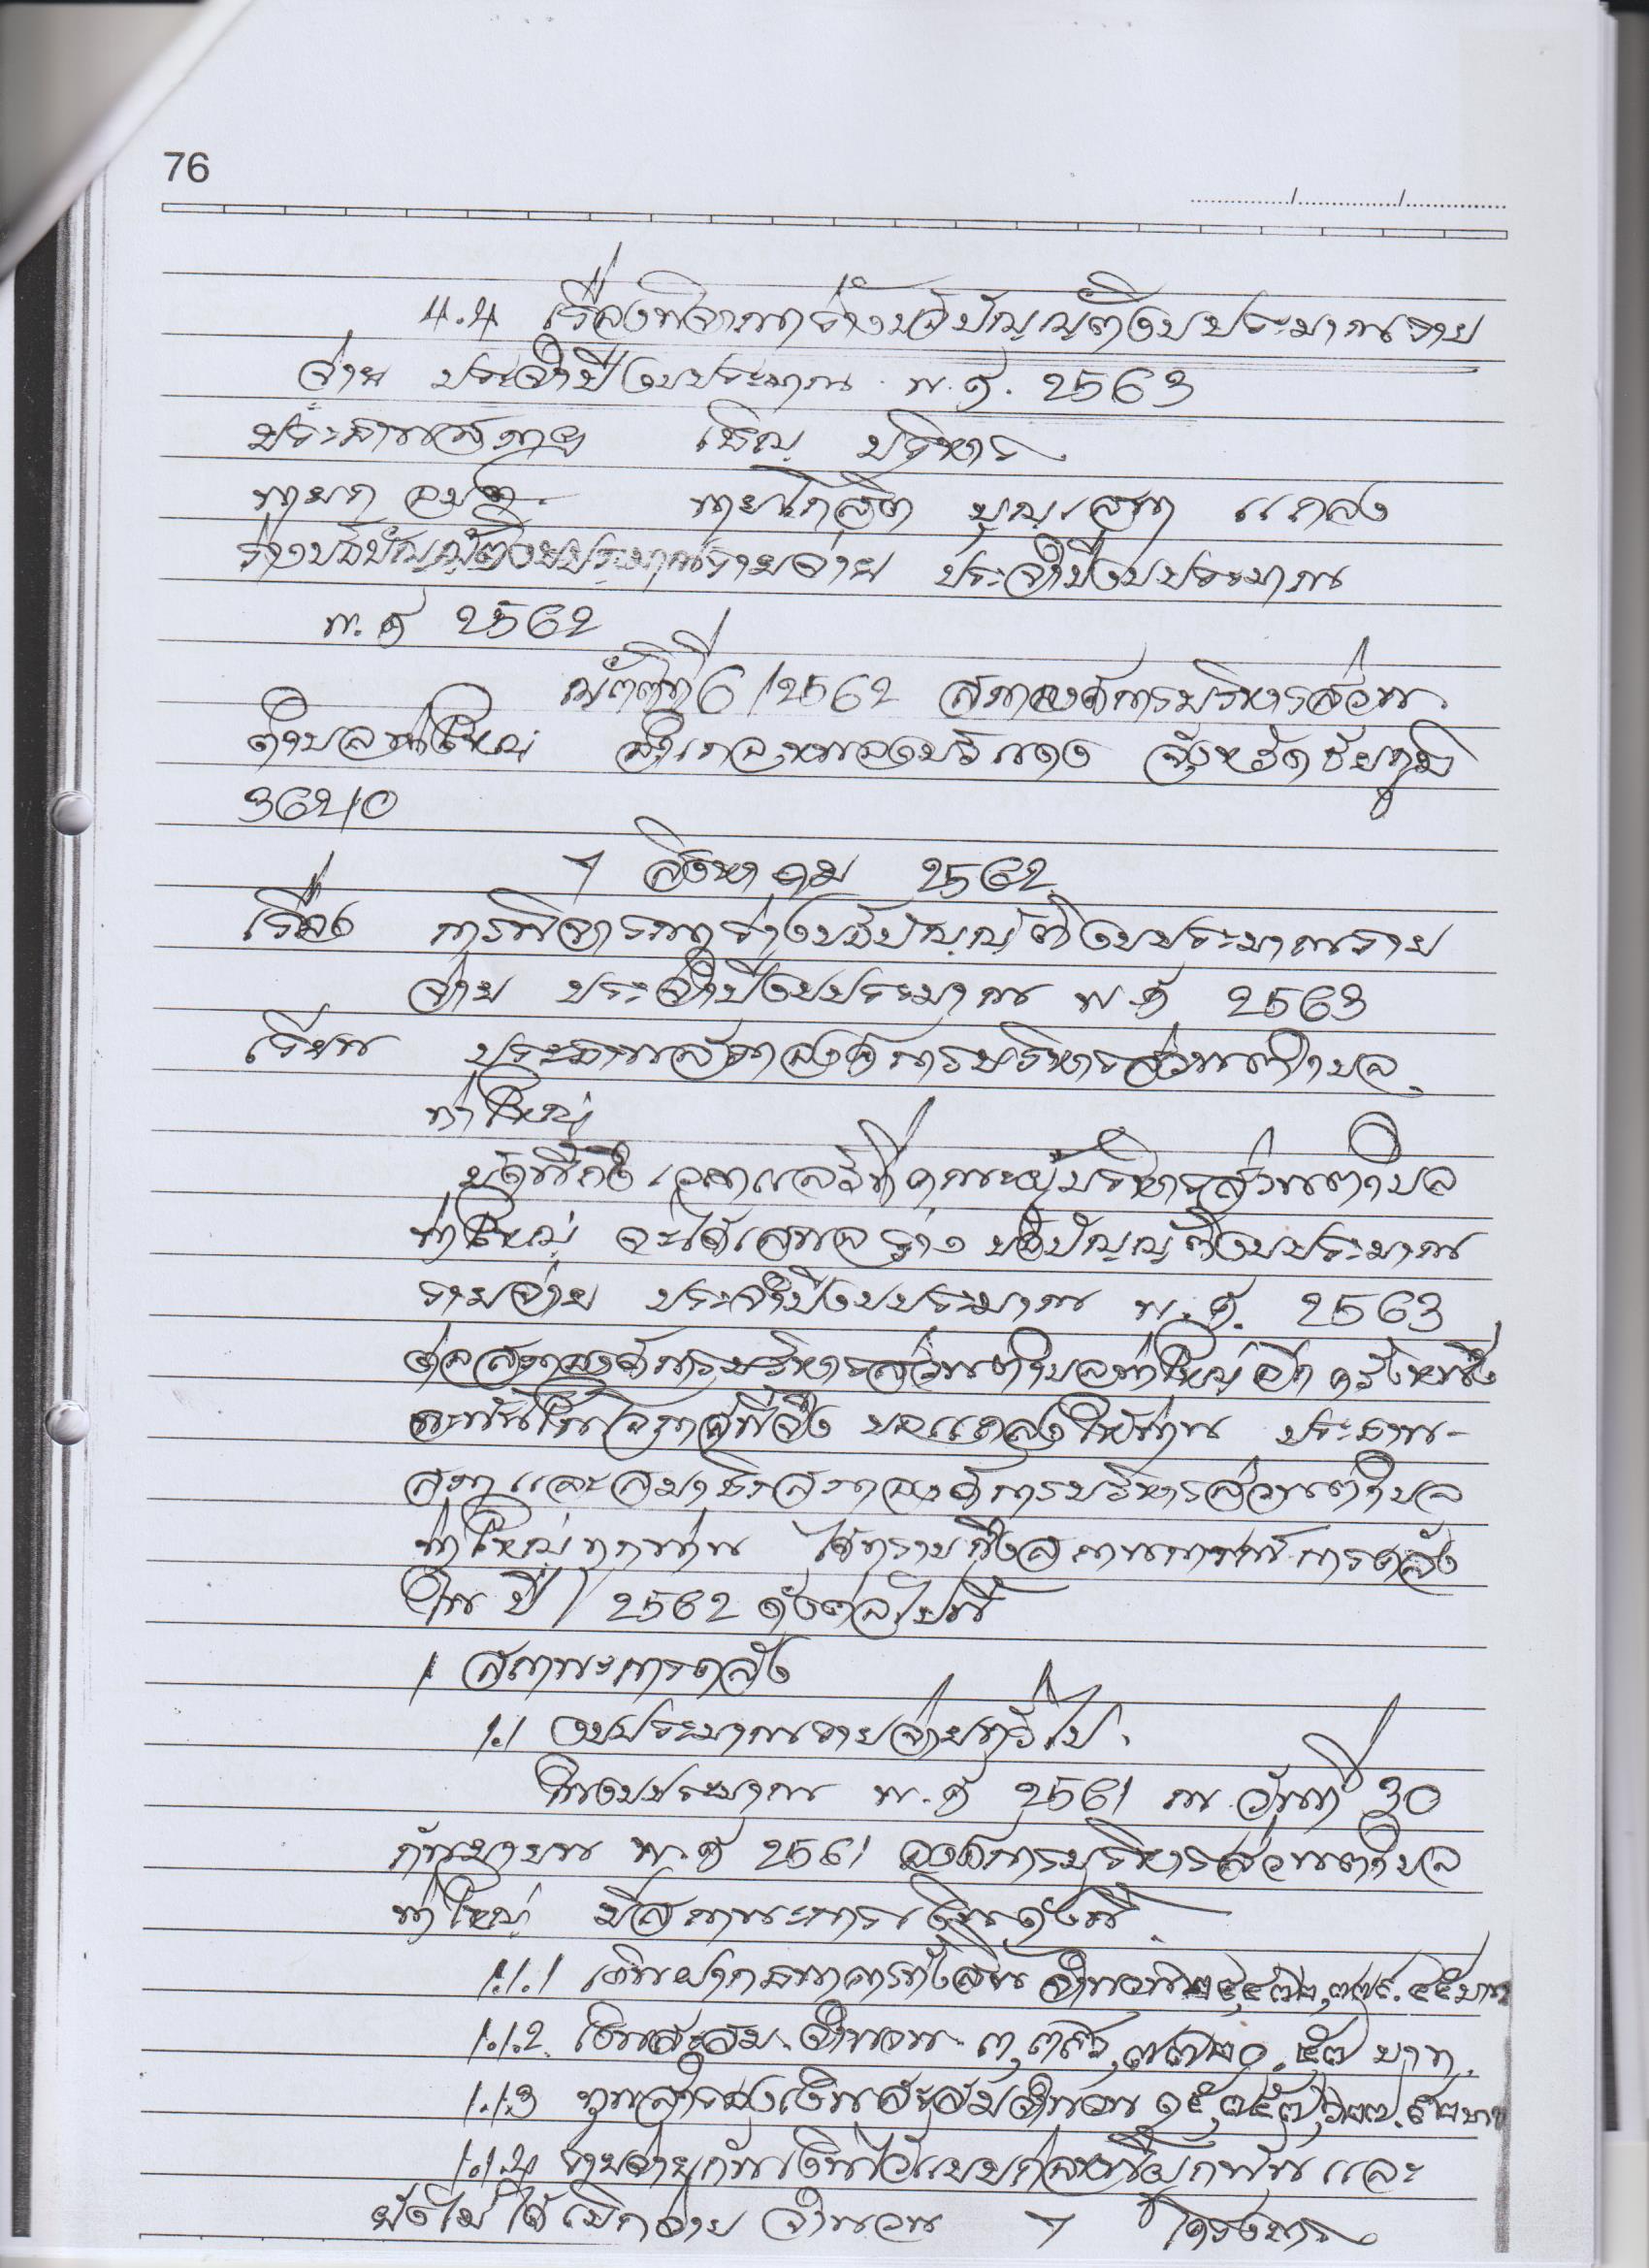 76
4.4 เรื่องพิจารณาร่างข้อบัญญัติงบประมาณราย
จ่าย ประจำปีงบประมาณ พ.ศ. 2563
ประธานสภาฯ เชิญ บริหาร
นายก อบต. นายโกสิต แถลง
ร่างข้อบัญญัติงบประมาณรายจ่าย ประจำปีงบประมาณ
พ.ศ 2562
ญัตติที่ 6/2562 สภาองค์การบริหารส่วน
ตำบลท่าใหญ่ อำเภอหนองบัวแดง จังหวัดชัยภูมิ
36210
7 สิงหาคม 2562
เรื่อง การพิจารณาร่างข้อบัญญัติงบประมาณราย
จ่าย ประจำปีงบประมาณ พ.ศ 2563
เรียน ประธานสภาองค์การบริหารส่วนตำบล
ท่าใหญ่
บัดนี้ถึงเวลาแล้วที่คณะผู้บริหารส่วนตำบล
ท่าใหญ่ จะได้เสนอร่าง ข้อบัญญัติงบประมาณ
รายจ่าย ประจำปีงบประมาณ พ.ศ. 2563
ต่อสภาองค์การบริหารส่วนตำบลท่าใหญ่อีกครั้งหนึ่ง
ฉะนั้นในโอกาสนี้จึง ขอแถลงให้ท่าน ประธาน-
สภาและสมาชิกสภาองค์การบริหารส่วนตำบล
ท่าใหญ่ทุกท่าน ได้ทราบถึงสถานการณ์การคลัง
ในปี 2562 ดังต่อไปนี้
1 สถานะการคลัง
1.1 งบประมาณรายจ่ายทั่วไป
ในงบประมาณ พ.ศ 2561 ณ วันที่ 30
กันยายน พ.ศ 2561 องค์การบริหารส่วนตำบล
ท่าใหญ่ มีสถานะการเงินดังนี้
1.1.1 เงินฝากธนาคารทั้งสิ้น จำนวน บาท
1.1.2 เงินสะสม จำนวน บาท
1.1.3 ทุนสำรองเงินสะสมจำนวน บาท
1.1.4 รายจ่ายกันเงินไว้แบบก่อหนี้ผูกพันและ
ยังไม่ได้เบิกจ่าย จำนวน 7 โครงการ